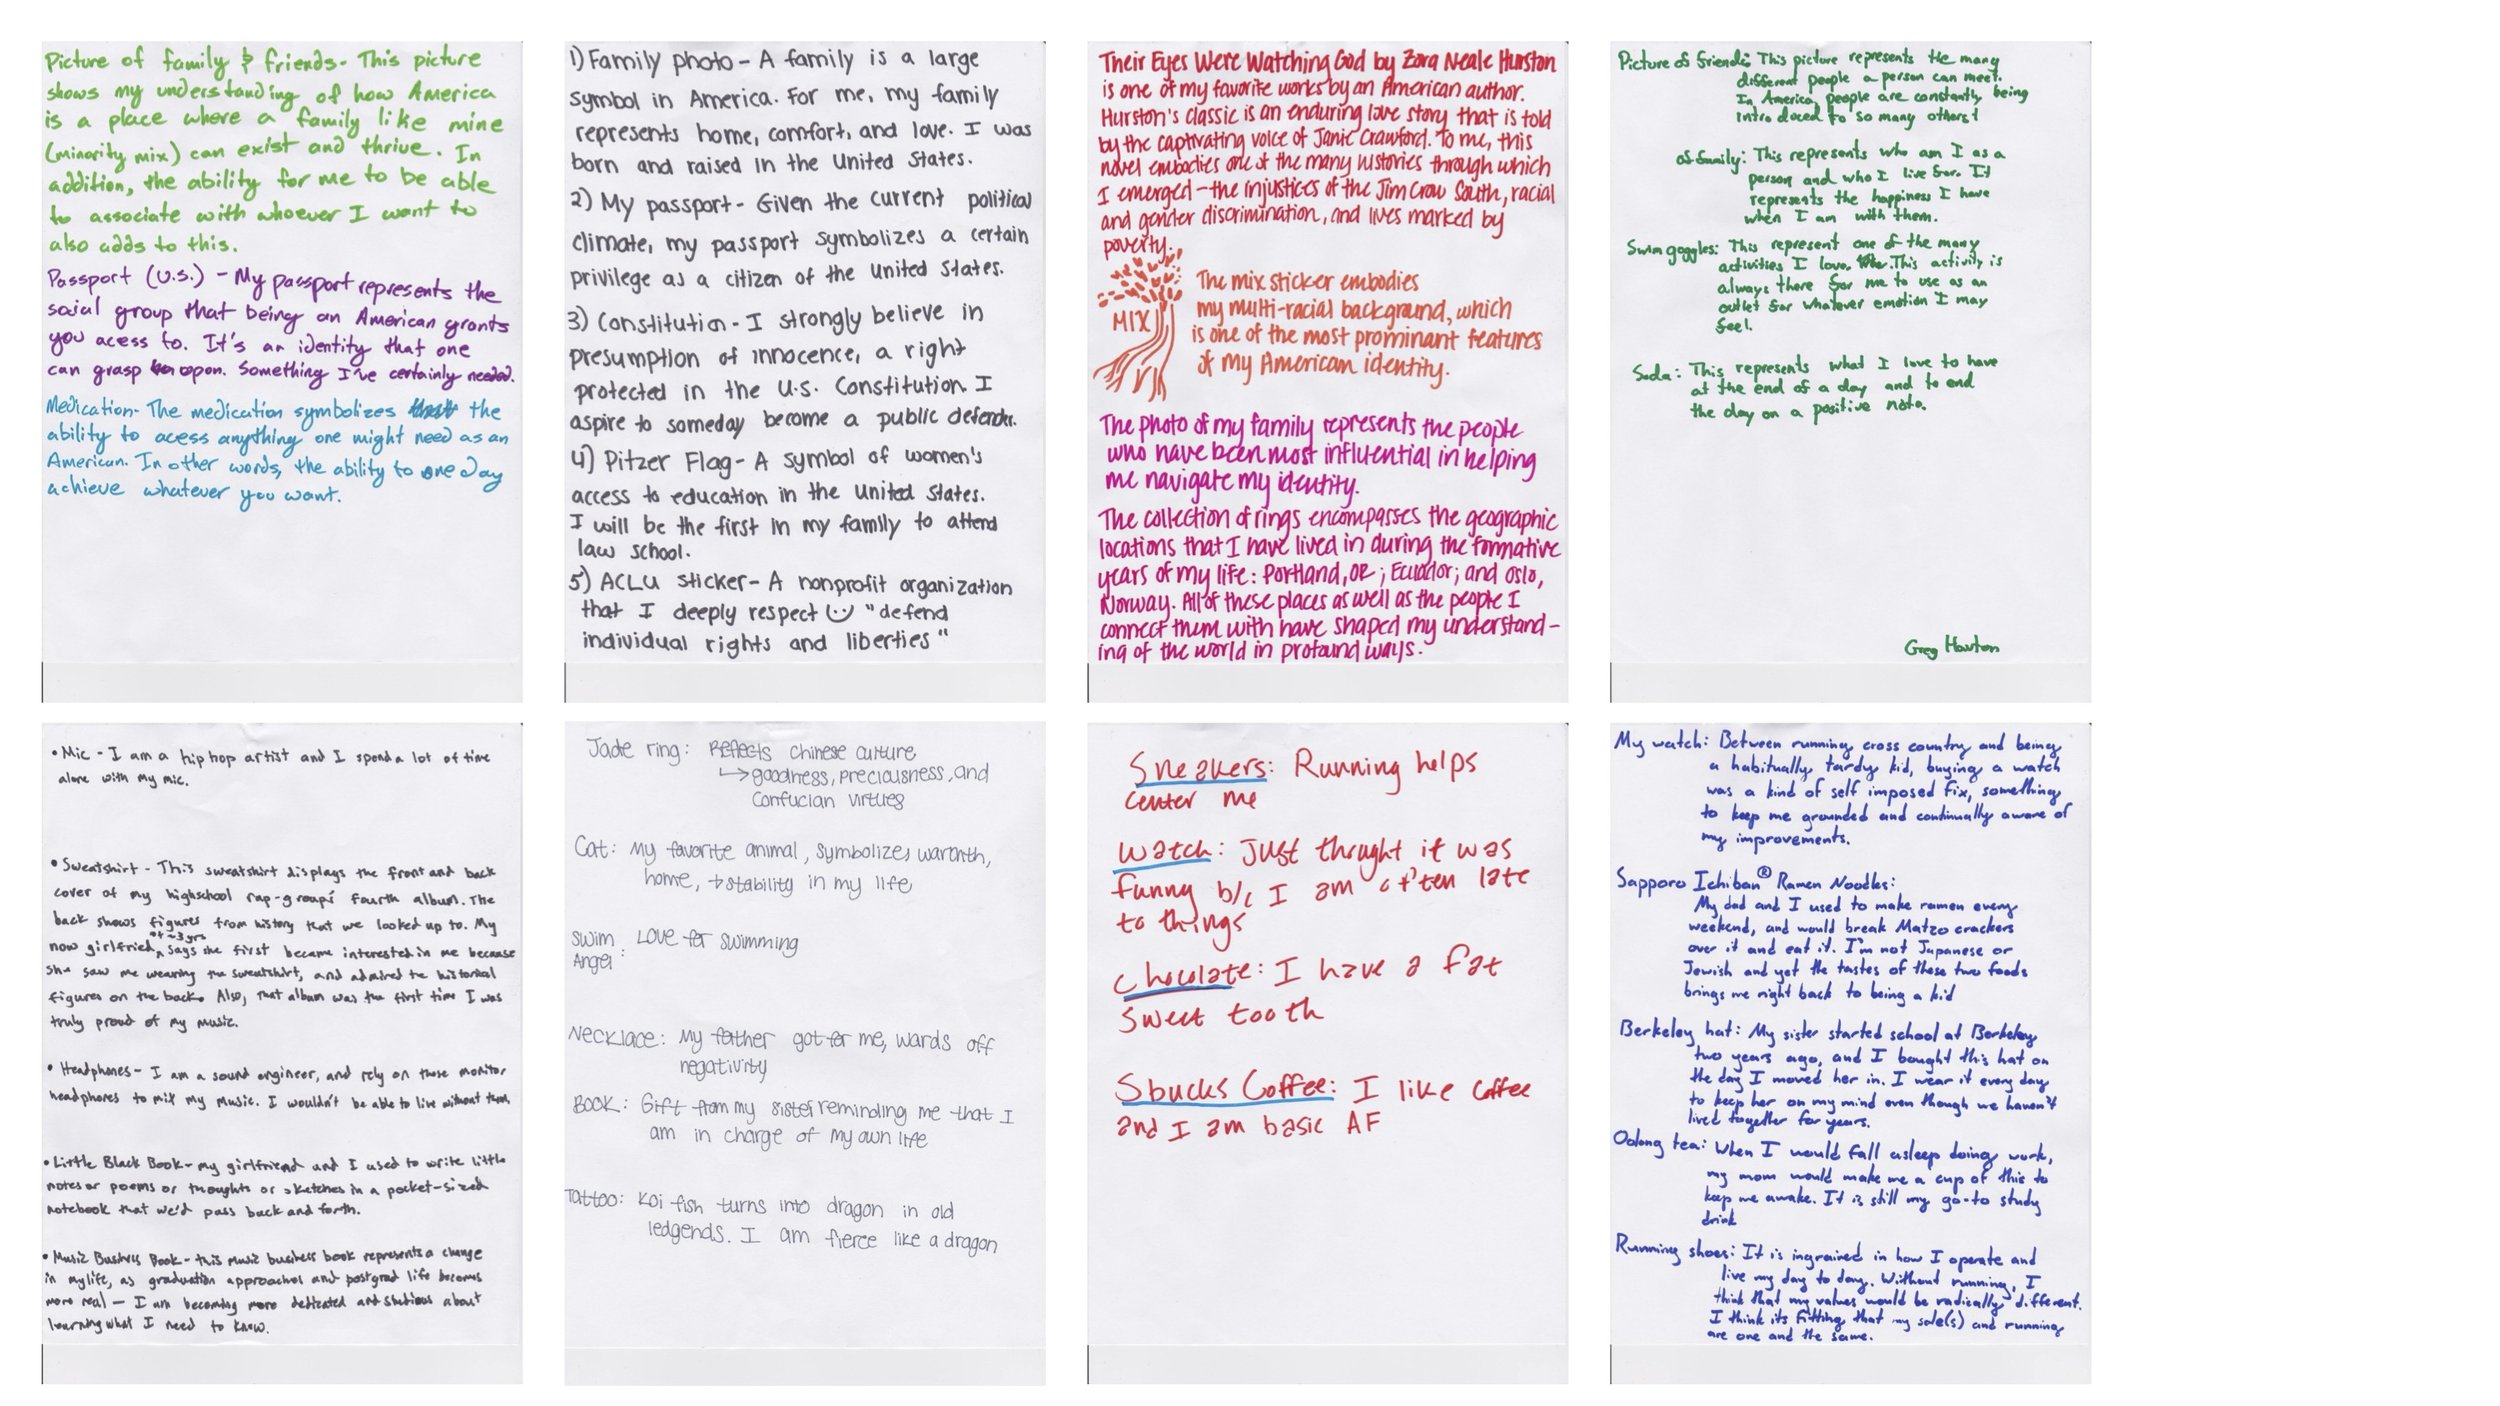 Picture of family & friends- This picture
shows my understanding of how America
is a place where a family like mine
(minority mix) can exist and thrive. In
addition, the ability for me to be able
to associate with whoever I want to
also adds to this.
Passport (U.S.) - My passport represents the
social group that being an American grants
you acess to. It's an identity that one
can grasp upon. Something I've certainly needed.
Medication- The medication symbolizes the
ability to acess anything one might need as an
American. In other words, the ability to one day
achieve whatever you want.
1) Family photo - A family is a large
symbol in America. For me, my family
represents home, comfort, and love. I was
born and raised in the United States.
2) My passport - Given the current political
climate, my passport symbolizes a certain
privilege as a citizen of the United States.
3) Constitution - I strongly believe in
presumption of innocence, a right
protected in the U.S. Constitution. I
aspire to someday become a public defender.
4) Pitzer Flag - A symbol of women's
access to education in the United States.
I will be the first in my family to attend
law school.
5) ACLU sticker - A nonprofit organization
that I deeply respect "defend
individual rights and liberties"
Their Eyes Were Watching God by Zora Neale Hurston
is one of my favorite works by an American author.
Hurston's classic is an enduring love story that is told
by the captivating voice of Janie Crawford. To me, this
novel embodies one of the many histories through which
I emerged - the injustices of the Jim Crow South, racial
and gender discrimination, and lives marked by
poverty.
MIX
The mix sticker embodies
my multi-racial background, which
is one of the most prominent features
of my American identity.
The photo of my family represents the people
who have been most influential in helping
me navigate my identity.
The collection of rings encompasses the geographic
locations that I have lived in during the formative
years of my life: Portland, OR; Ecuador; and Oslo,
Norway. All of these places as well as the people I
connect them with have shaped my understand-
ing of the world in profound ways.
Picture of friends: This picture represents the many
different people a person can meet.
In America, people are constantly being
introduced to so many others!
of family: This represents who am I as a
person and who I live for. It
represents the happiness I have
when I am with them.
Swim goggles: This represent one of the many
activities I love. This activity is
always there for me to use as an
outlet for whatever emotion I may
feel.
Soda: This represents what I love to have
at the end of a day and to end
the day on a positive note.
Greg
• Mic - I am a hip hop artist and I spend a lot of time
alone with my mic.
• Sweatshirt - This sweatshirt displays the front and back
cover of my highschool rap-group's fourth album. The
back shows figures from history that we looked up to. My
now girlfried, of ~3 yrs says she first became interested in me because
she saw me wearing the sweatshirt, and admired the historical
figures on the back. Also, that album was the first time I was
truly proud of my music.
• Headphones - I am a sound engineer, and rely on these monitor
headphones to mix my music. I wouldn't be able to live without them.
• Little Black Book - my girlfriend and I used to write little
notes or poems or thoughts or sketches in a pocket-sized
notebook that we'd pass back and forth.
• Music Business Book - this music business book represents a change
in my life, as graduation approaches and postgrad life becomes
more real - I am becoming more dedicated and studious about
learning what I need to know.
Jade ring: Reflects Chinese culture
→ goodness, preciousness, and
Confucian virtues
Cat: My favorite animal, symbolizes warmth,
home, + stability in my life
Swim Angel: Love for swimming
Necklace: My father got for me, wards off
negativity
Book: Gift from my sister reminding me that I
am in charge of my own life
Tattoo: Koi fish turns into dragon in old
ledgends. I am fierce like a dragon
Sneakers: Running helps
center me
Watch: Just thought it was
funny b/c I am often late
to things
Chocolate: I have a fat
sweet tooth
Sbucks Coffee: I like coffee
and I am basic AF
My watch: Between running cross country and being
a habitually tardy kid, buying a watch
was a kind of self imposed fix, something
to keep me grounded and continually aware of
my improvements.
Sapporo Ichiban® Ramen Noodles:
My dad and I used to make ramen every
weekend, and would break Matzo crackers
over it and eat it. I'm not Japanese or
Jewish and yet the tastes of these two foods
brings me right back to being a kid
Berkeley hat: My sister started school at Berkeley
two years ago, and I bought this hat on
the day I moved her in. I wear it every day
to keep her on my mind even though we haven't
lived together for years.
Oolong tea: When I would fall asleep doing work,
my mom would make me a cup of this to
keep me awake. It is still my go-to study
drink
Running shoes: It is ingrained in how I operate and
live my day to day. Without running, I
think that my values would be radically different.
I think its fitting that my sole(s) and running
are one and the same.